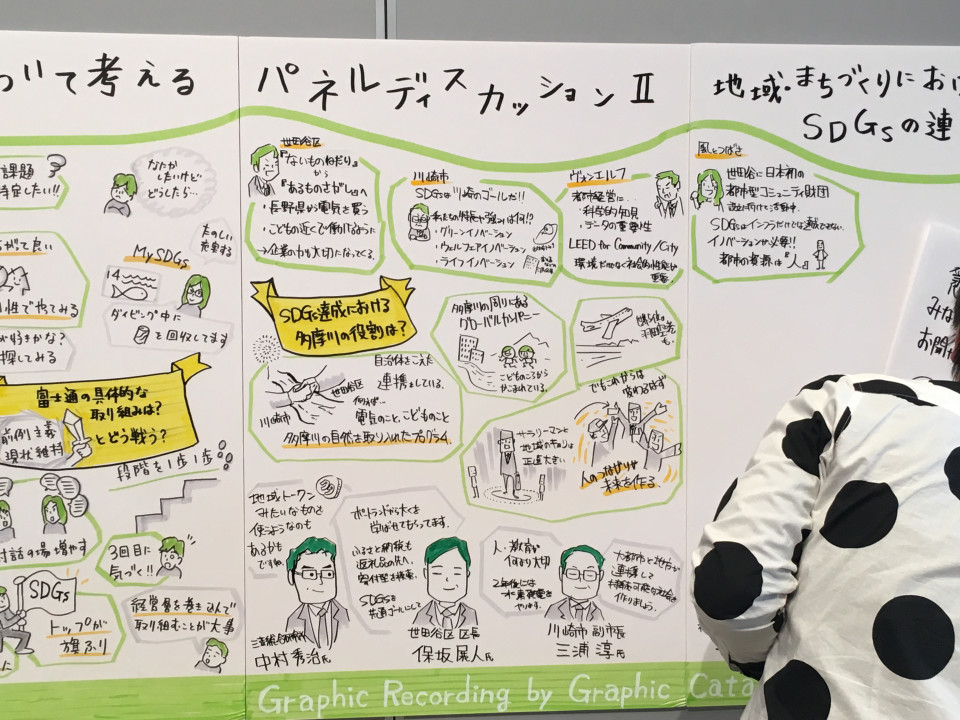 づいて考える
課題
特定したい!!
なんか
したいけど
どうしたら…
My SDGs
たのしい
発見する
14
ダイビング中に
を回収してます
がって良い
性でやってみる
が好きかな?
探してみる
富士通の具体的な
取り組みは?
前例主義
現状維持
とどう戦う?
段階を1歩1歩
対話の場増やす
3回目に
気づく!!
SDGs
トップが
旗ふり
経営層を巻き込んで
取り組むことが大事
パネルディスカッションⅡ
世田谷区
『ないものねだり』
から
『あるものさがし』へ
・長野県から電気を買う
・こどもの近くで働けるように
→企業の力も大切になってくる。
川崎市
SDGsは川崎のゴールだ!!
私たちの特長や強みは何!?
・グリーンイノベーション
・ウェルフェアイノベーション
・ライフイノベーション
ヴォンエルフ
都市経営に…
・科学的知見
・データの重要性
LEED for Community/City
環境だけでなく社会的性能も
重要。
SDGs達成における
多摩川の役割は?
自治体をこえた
連携をしている。
世田谷区
川崎市
例えば…
電気のこと、こどものこと
多摩川の自然を取り入れたプログラム
多摩川の周りにある
グローバルカンパニー
こどものころから
かこまれている。
羽田空港
も。
サラリーマンと
地域のギャップは
正直大きい
でもこれからは
変わるはず
人のつながりが
未来を作る
地域トークン
みたいなものを
使うようなのも
あるかも
ですね。
中村秀治氏
ポートランドから大くを
学ばせてもらってます。
ふるさと納税も
返礼品の代り、
寄付型を模索。
SDGsを
共通ゴールにして
世田谷区 区長
保坂展人氏
人・教育が
何より大切
2年後には
水素発電を
やります。
川崎市 副市長
三浦 淳氏
大都市と地方が
連携して
持続可能な社会を
作りましょう。
地域・まちづくりにおけ
SDGsの連
風とつばさ
世田谷に日本初の
都市型コミュニティ財団
設立に向けて活動中。
SDGsはインフラだけでは達成できない。
イノベーションが必要!!
都市の資源は『人』
みな
お聞
Graphic Recording by Graphic Cata